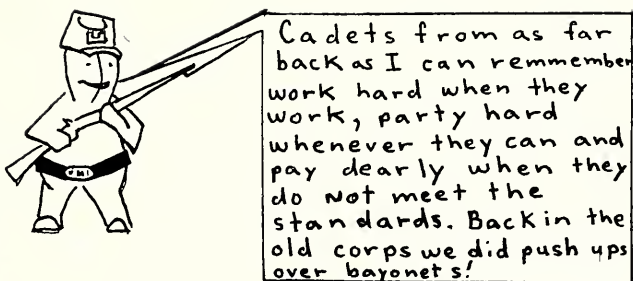 Cadets from as far
back as I can remmember
work hard when they
work, party hard
whenever they can and
pay dearly when they
do not meet the
standards. Back in the
old corps we did push ups
over bayonets!